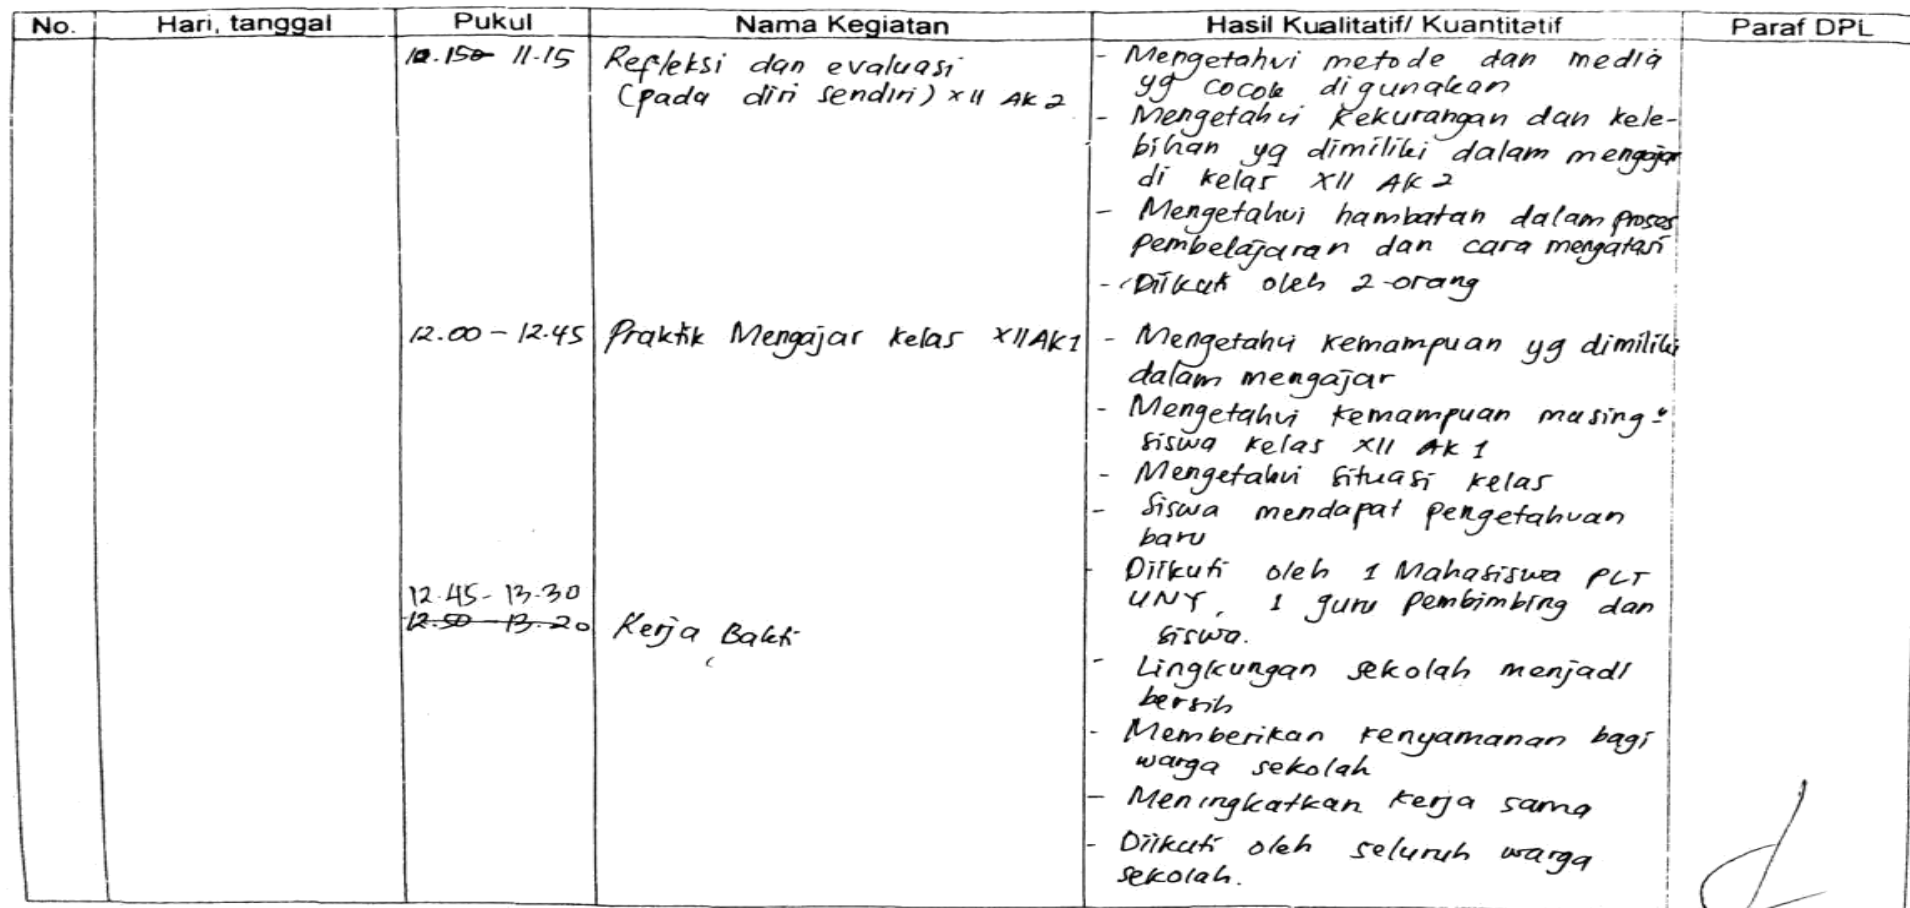 No. Hari, tanggal Pukul Nama Kegiatan Hasil Kualitatif/ Kuantitatif Paraf DPL
10.150- 11.15 Refleksi dan evaluasi - Mengetahui metode dan media
(pada diri sendiri) XII AK 2 yg cocok digunakan
- Mengetahui kekurangan dan kele-
bihan yg dimiliki dalam mengajar
di kelas XII AK 2
- Mengetahui hambatan dalam proses
pembelajaran dan cara mengatasi
- Diikuti oleh 2 orang
12.00 - 12.45 Praktik Mengajar kelas XII AK 1 - Mengetahui kemampuan yg dimiliki
dalam mengajar
- Mengetahui kemampuan masing-"
siswa kelas XII AK 1
- Mengetahui situasi kelas
- Siswa mendapat pengetahuan
baru
- Diikuti oleh 1 Mahasiswa PLT
12.45 - 13.30 UNY, 1 guru pembimbing dan
12.50 - 13.20 Kerja Bakti siswa.
- Lingkungan sekolah menjadi
bersih
- Memberikan kenyamanan bagi
warga sekolah
- Meningkatkan kerja sama
- Diikuti oleh seluruh warga
sekolah.